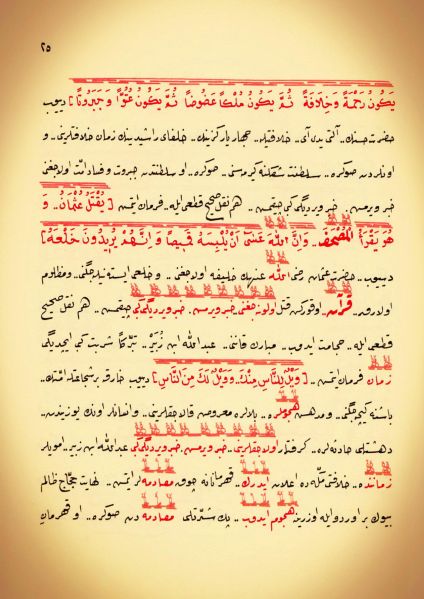 ٢٥
يَكُونُ رَحْمَةً وَخِلَافَةً ثُمَّ يَكُونُ مُلْكًا عَضُوضًا ثُمَّ يَكُونُ عُتُوًّا وَجَبَرُوتًا] دیوب
حضرت حسنك.. آلتى آى.. خلافتيله.. جهار يارگزينك.. خلفاى راشدينك زمان خلافتلرينى.. و
اونلردن صوكره.. سلطنت شكلنه گيرمسنى.. صوكره.. او سلطنتدن جبروت و فساد امّت اولاجغنى
خبر ويرمش. خبر ويرديگى گبى چيقمش.. هم نقل صحيح قطعى ايله.. فرمان ايتمش [يُقْتَلُ عُثْمَانُ.. وَ
هُوَ يَقْرَأُ الْمُصْحَفَ.. وَاِنَّ اللّٰهَ عَسٰى اَنْ يُلْبِسَهُ قَمِيصًا وَاِنَّهُمْ يُرِيدُونَ خَلْعَهُ]
دييوب.. حضرت عثمان رضى الله عنهك خليفه اولاجغنى.. و خلعى ايسته نيله جگنى.. و مظلوم
اولارق.. قرآن اوقوركن قتل اولونه جغنى خبر ويرمش. خبر ويرديگى گبى چيقمش.. هم نقل صحيح
قطعى ايله.. حجامت ايدوب.. مبارك قاننى.. عبدالله ابن زُبَيْر.. تبرّكًا شربت گبى ايچديگى
زمان فرمان ايتمش.. [وَيْلٌ لِلنَّاسِ مِنْكَ.. وَوَيْلٌ لَكَ مِنَ النَّاسِ] دييوب خارقه بر شجاعتله امّتك..
باشنه گچه جگنى.. و مدهش هجوملره.. معروض قالاجقلرينى.. و انسانلر اونك يوزيندن..
دهشتلى حادثه لره.. گرفتار اولاجقلرينى.. خبر ويرمش. خبر ويرديگى گبى عبدالله ابن زبير.. امويلر
زماننده.. خلافتى مكّه ده اعلان ايدرك.. قهرمانانه چوق مصادمه لر ايتمش.. نهايت حجّاج ظالم
بيوك بر اوردو ايله اوزرينه هجوم ايدوب.. پك شدّتلى مصادمه دن صوكره.. او قهرمان